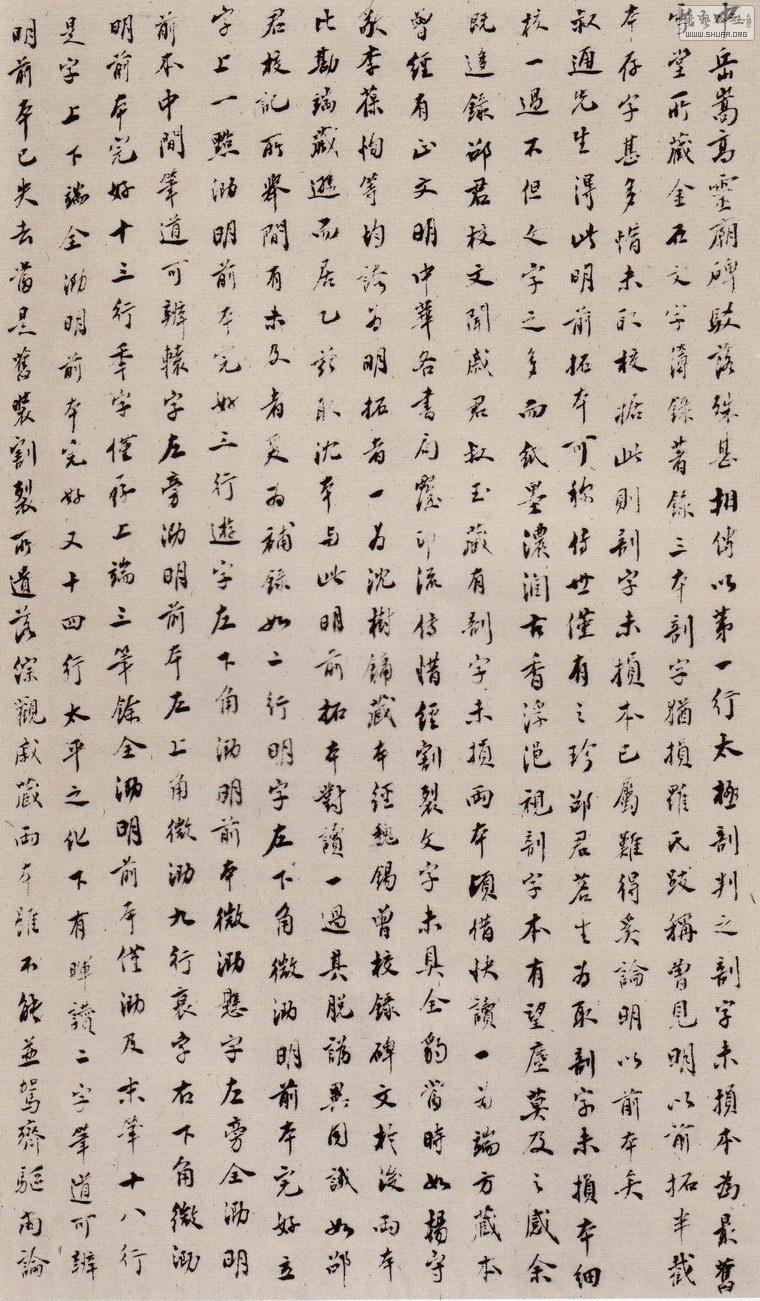 中岳嵩高靈廟碑駁落殊甚相傳以第一行太極剖判之剖字未損本為最舊
雪堂所藏金石文字簿錄著錄三本剖字猶損羅氏跋稱曾見明以前拓半截
本存字甚多惜未取校據此則剖字未損本已屬難得奚論明以前本矣
叔通先生得此明前拓本可稱傳世僅有之珍鄒君若生為取剖字未損本細
核一過不但文字之多而紙墨濃潤古香浮浥視剖字本有望塵莫及之感余
既逢錄鄒君校文聞戚君叔玉藏有剖字未損兩本頃借快讀一為端方藏本
曾經有正文明中華各書局影印流傳惜經割裂文字未具全豹當時如楊守
敬李葆恂等均誇為明拓者一為沈樹鏞藏本經魏錫曾校錄碑文於後兩本
比勘端藏遜而居乙茲取沈本與此明前拓本對讀一過其脫譌異同誠如鄒
君校記所舉間有未及者爰為補錄如二行明字左下角微泐明前本完好立
字上一點泐明前本完好三行遊字左下角泐明前本微泐懸字左旁全泐明
前本中間筆道可辨轅字左旁泐明前本左上角微泐九行哀字右下角微泐
明前本完好十三行年字僅存上端三筆餘全泐明前本僅泐及末筆十八行
是字上下端全泐明前本完好又十四行太平之化下有暉讚二字筆道可辨
明前本已失去當是舊裝割裂所遺落綜觀戚藏兩本雖不能並駕齊驅而論
WWW.SHUFA.ORG